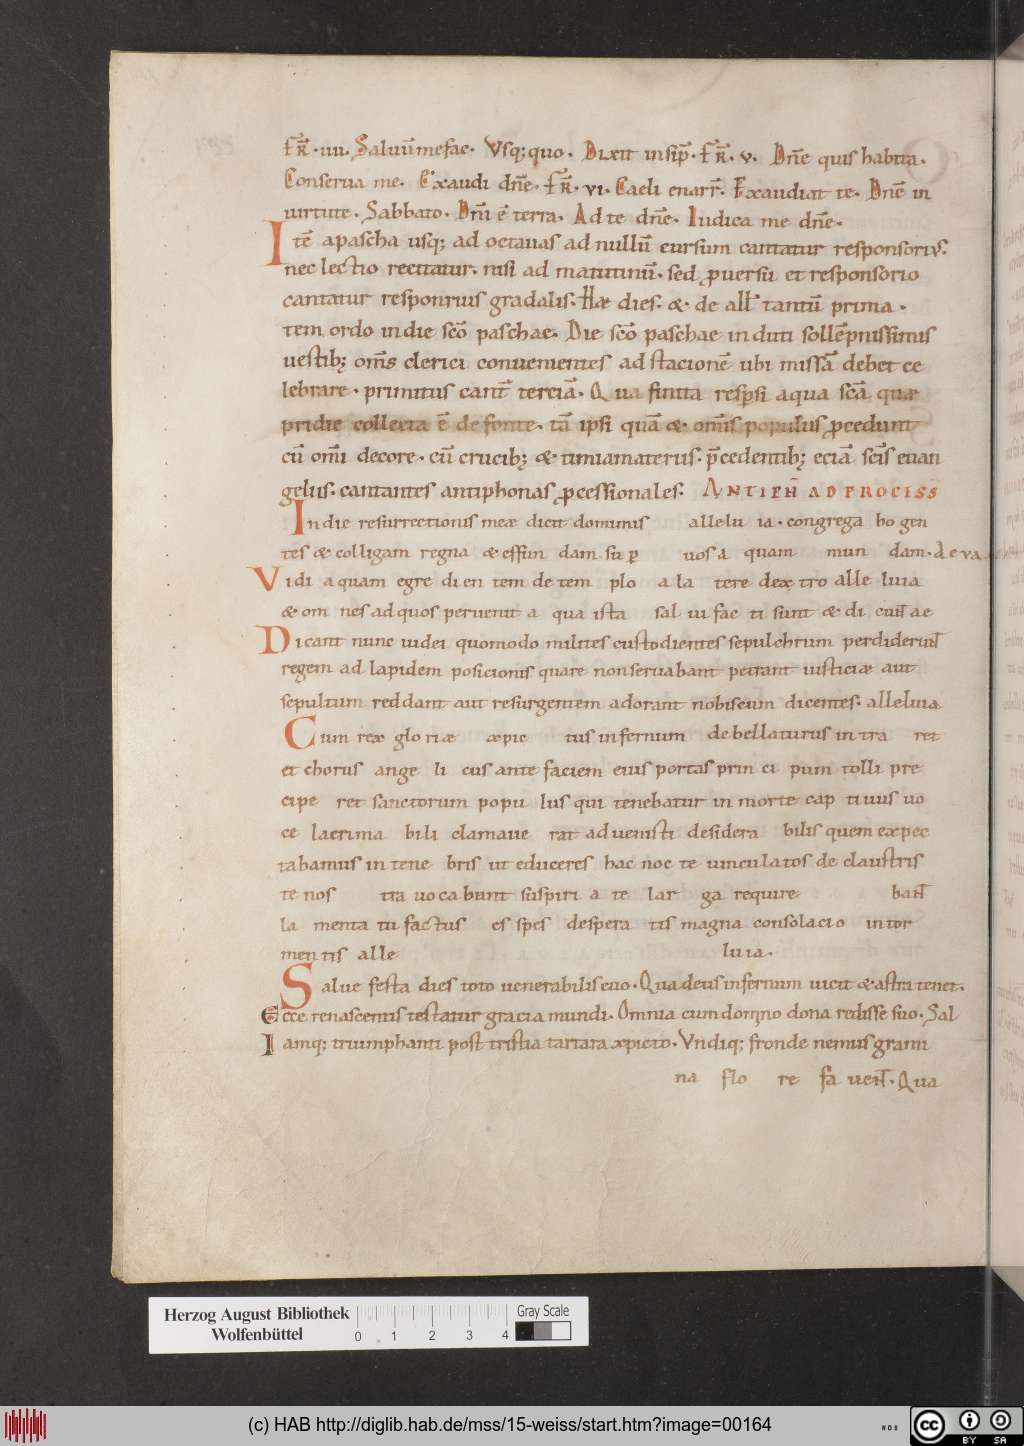 fr̄. iiii. Saluū me fac. Vsq; quo. Dixit insip̄. fr̄. v. Dn̄e quis habita.
Conserua me. Exaudi dn̄e. fr̄. vi. Caeli enarr̄. Exaudiat te. Dn̄e in
uirtute. Sabbato. Dn̄i ē terra. Ad te dn̄e. Iudica me dn̄e.
Itē a pascha usq; ad octauas ad nullū cursum cantatur responsoriꝰ.
nec lectio recitatur. nisi ad matutinū. sed ꝓ uersu et responsorio
cantatur responrius gradalis. Hæc dies. & de all̄ tantū prima.
tem ordo in die sc̄o paschae. Die sc̄o paschae induti sollēpnissimis
uestib; om̄s clerici conuenientes ad stacionē ubi missā debet ce
lebrare. primitus cant̄ terciā. Qua finita resp̱si aqua sc̄a quæ
pridie collecta ē de fonte. tā ipsi quā & om̄is populus ꝓcedunt
cū om̄i decore. cū crucib; & timiamateriis. p̄cedentib; eciā sc̄is euan
gelus. cantantes antiphonas ꝓcessionales. ANTIPH̄ AD PROCESS
In die resurrectionis meæ dicit dominus allelu ia. congrega bo gen
tes & colligam regna & effun dam sup̱ uos a quam mun dam. aeva
Vidi aquam egre di en tem de tem plo a la tere dex tro alle luia
& om nes ad quos peruenit a qua ista sal ui fac ti sunt & di cun̄ ae
Dicant nunc iudei quomodo milites custodientes sepulchrum perdiderun̄
regem ad lapidem posicionis quare non seruabant petrant iusticiæ aut
sepultum reddant aut resurgentem adorant nobiscum dicentes. alleluia
Cum rex glo riæ xpic tus infernum debellaturus in tra ret
et chorus ange li cus ante faciem eius portas prin ci pum tolli pre
cipe ret sanctorum popu lus qui tenebatur in morte cap tiuus uo
ce lacrima bili clamaue rat aduenisti desidera bilis quem expec
tabamus in tene bris ut educeres hac noc te uinculatos de claustris
te nos tra uocabant suspiri a te lar ga require ban̄
la menta tu factus es spes despera tis magna consolacio in tor
men tis alle luia.
Salue festa dies toto uenerabilis euo. Qua deus infernum uicit & astra tenet.
Ecce renascentis testatur gracia mundi. Omnia cum domino dona redisse suo. Sal
Iamq; triumphanti post tristia tartara xpicto. Vndiq; fronde nemus grami
na flo re fa uen̄. Qua
Herzog August Bibliothek
Wolfenbüttel
0 1 2 3 4
Gray Scale
(c) HAB http://diglib.hab.de/mss/15-weiss/start.htm?image=00164
WDB
cc BY SA